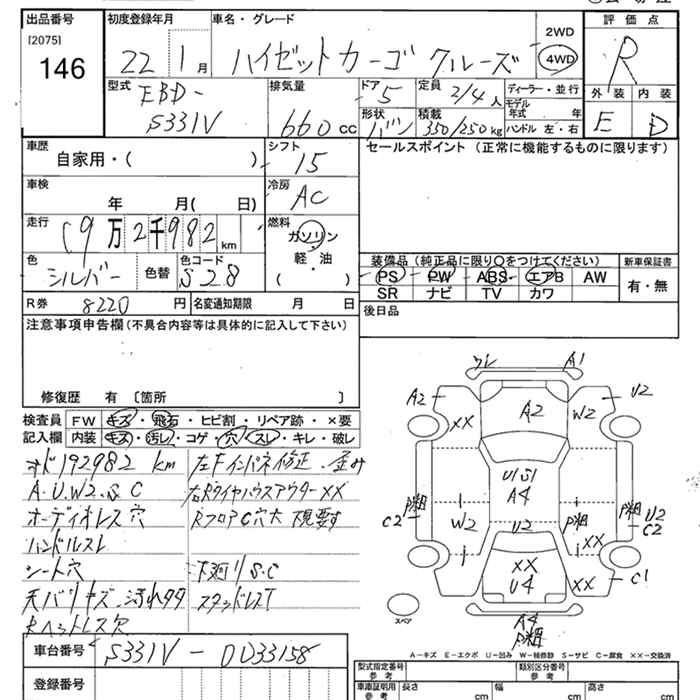 出品番号
[2075]
146
初度登録年月
22 1月
車名・グレード
ハイゼットカーゴ クルーズ
2WD
4WD
評価点
R
外装 内装
E D
型式
EBD-
S331V
排気量
660 cc
ドア
5
定員
2/4人
形状
バン
積載
350/250 kg
ディーラー・並行
モデル
年式 年
ハンドル 左・右
車歴
自家用・( )
シフト
15
セールスポイント(正常に機能するものに限ります)
車検
年 月( 日)
冷房
AC
走行
19万2千982km
燃料
ガソリン
・
軽油
・
( )
色
シルバー
色替
色コード
S28
装備品(純正品に限り○をつけてください)
PS PW ABS エアB AW
SR ナビ TV カワ
新車保証書
有・無
R券 8220円
名変通知期限 月 日
後日品
注意事項申告欄(不具合内容等は具体的に記入して下さい)
修復歴 有 〔箇所 〕
検査員
記入欄
FW キズ・飛石・ヒビ割・リペア跡・×要
内装 キズ・汚レ・コゲ・穴・スレ・キレ・破レ
オド192982km
A.U.W2.S C
オーディオレス穴
ハンドルスレ
シート穴
天バリキズ、汚れ
左Fインパネ修正・歪み
右Rタイヤハウスアウター××
RフロアC穴大 下見要す
下廻りS.C
スタッドレスT
ワレ A1
A2 U2
×× A2 W2
A4
P粗 P粗
C2 W2 U2 U2
C2
××
×× ××
U4 C1
スペア
A4
P粗
A-キズ E-エクボ U-凹み W-補修跡 S-サビ C-腐食 ××-交換済
車台番号
S331V - 0033158
登録番号
型式指定番号
参考
類別区分番号
参考
車庫証明用
参考
長さ cm
幅 cm
高さ cm